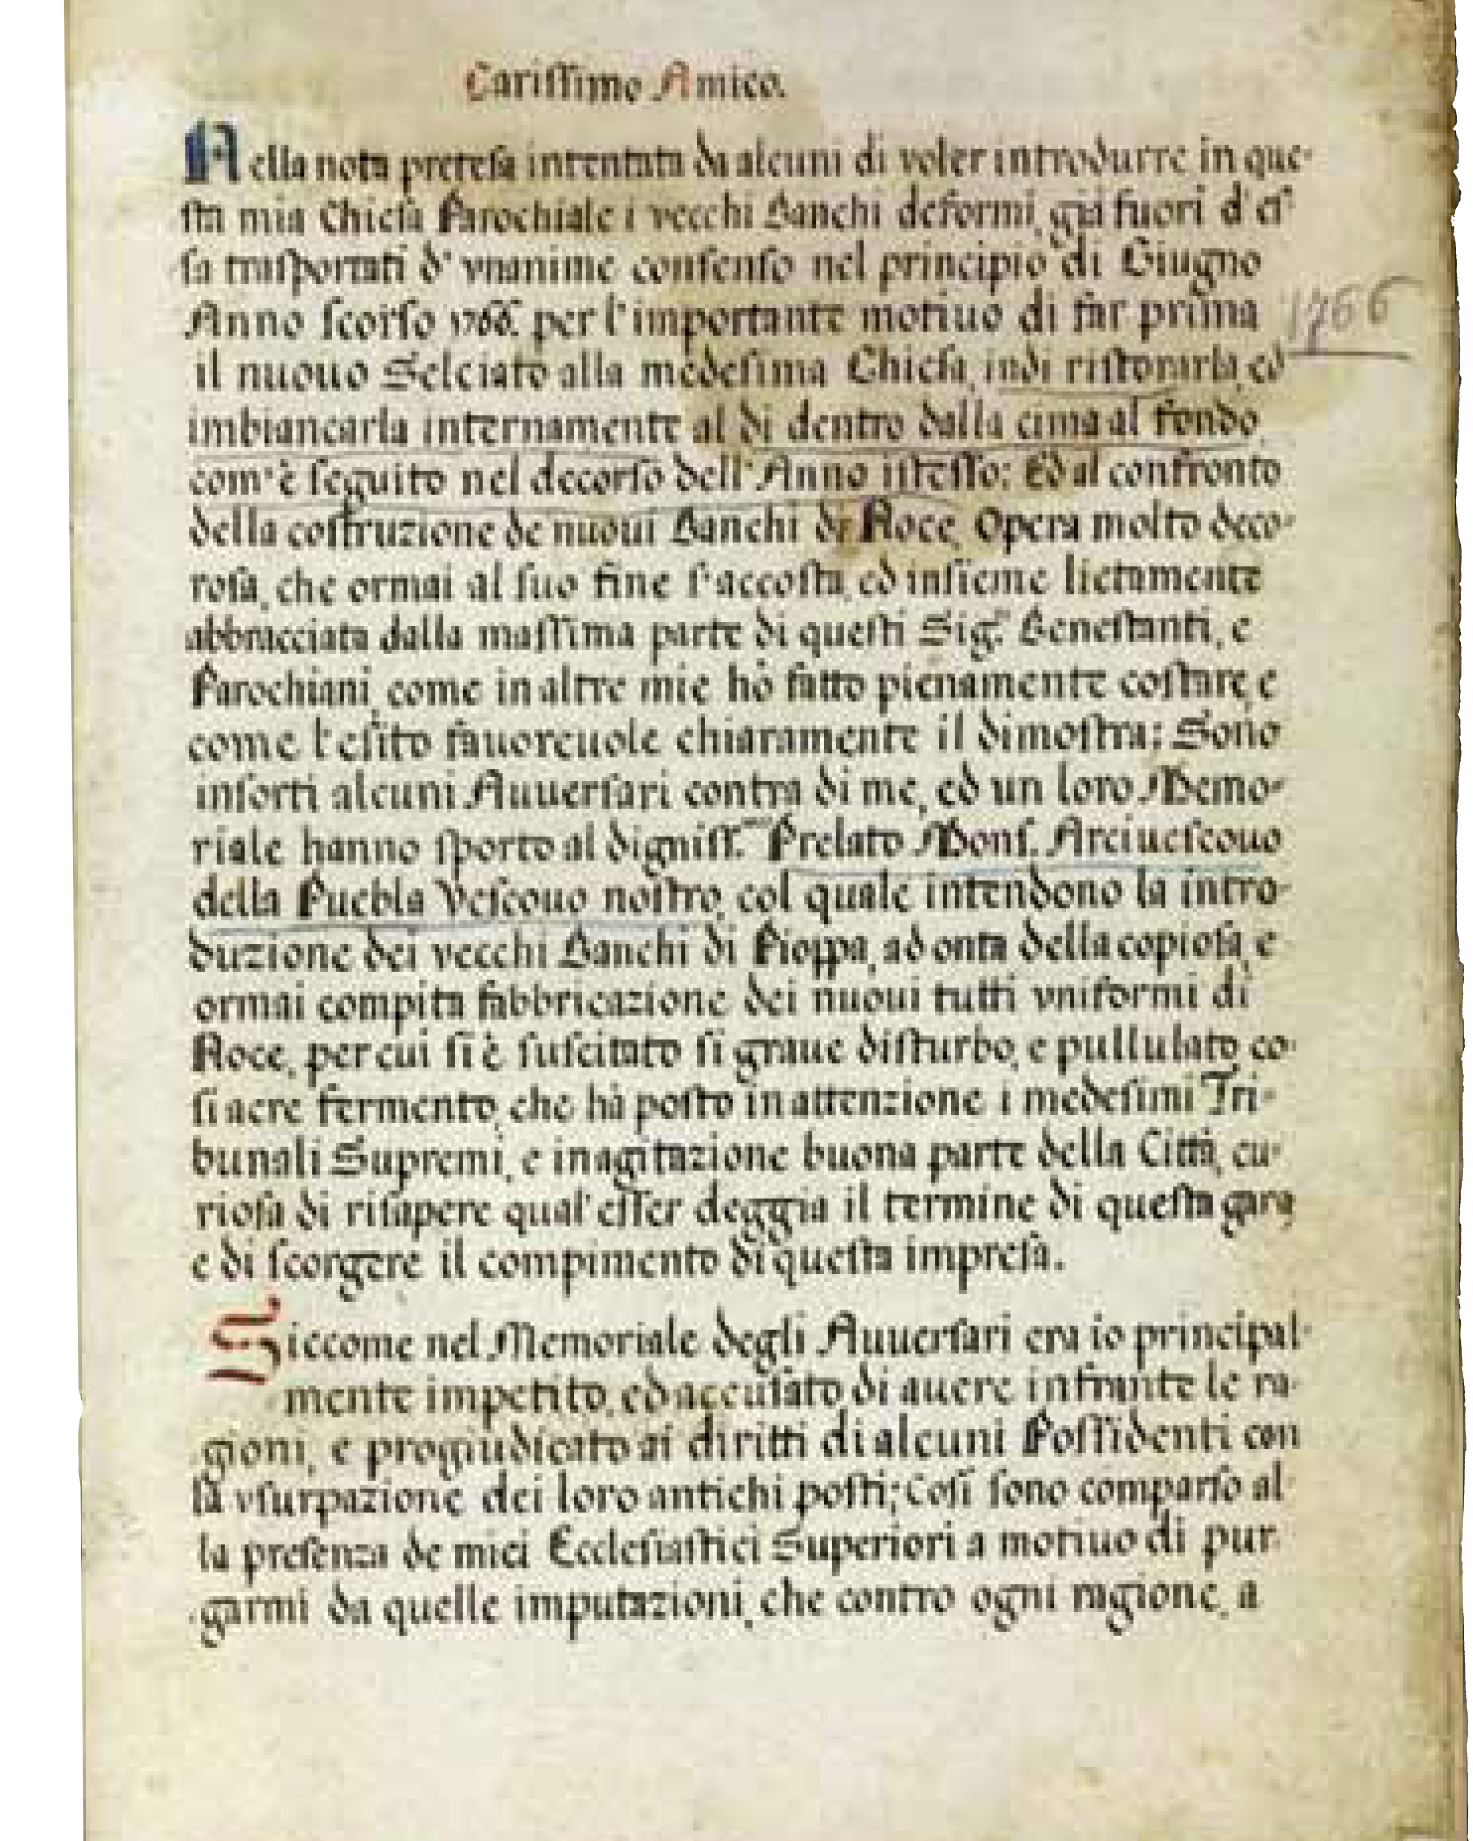 Cariſſimo Amico.
Nella nota preteſa intentata da alcuni di voler introdurre in que-
ſta mia Chieſa Parochiale i vecchi Banchi deformi, già fuori d'eſ-
ſa traſportati d'vnanime conſenſo nel principio di Giugno
Anno ſcorſo 1766. per l'importante motiuo di far prima
1766
il nuouo Selciato alla medeſima Chieſa, indi riſtorarla, ed
imbiancarla internamente al di dentro dalla cima al fondo,
com'è ſeguito nel decorſo dell'Anno iſteſſo: Ed al confronto
della coſtruzione de nuoui Banchi di Noce, Opera molto deco-
roſa, che ormai al ſuo fine ſ'accoſta, ed inſieme lietamente
abbracciata dalla maſſima parte di queſti Sig.ri Beneſtanti, e
Parochiani, come in altre mie hò fatto pienamente coſtare, e
come l'eſito fauoreuole chiaramente il dimoſtra; Sono
inſorti alcuni Auuerſari contra di me, ed un loro Memo-
riale hanno ſporto al digniſſ.mo Prelato Monſ. Arciueſcouo
della Puebla Veſcouo noſtro, col quale intendono la intro-
duzione dei vecchi Banchi di Pioppa, ad onta della copioſa, e
ormai compita fabbricazione dei nuoui tutti vniformi di
Noce, per cui ſi è ſuſcitato ſi graue diſturbo, e pullulato co-
ſi acre fermento, che hà poſto in attenzione i medeſimi Tri-
bunali Supremi, e in agitazione buona parte della Città, cu-
rioſa di riſapere qual'eſſer deggia il termine di queſta gara
e di ſcorgere il compimento di queſta impreſa.
Siccome nel Memoriale degli Auuerſari era io principal-
mente impetito, ed accuſato di auere infrante le ra-
gioni, e progiudicato ai diritti di alcuni Poſſidenti con
la vſurpazione dei loro antichi poſti; Coſi ſono comparſo al-
la preſenza de miei Eccleſiaſtici Superiori a motiuo di pur-
garmi da quelle imputazioni, che contro ogni ragione, a